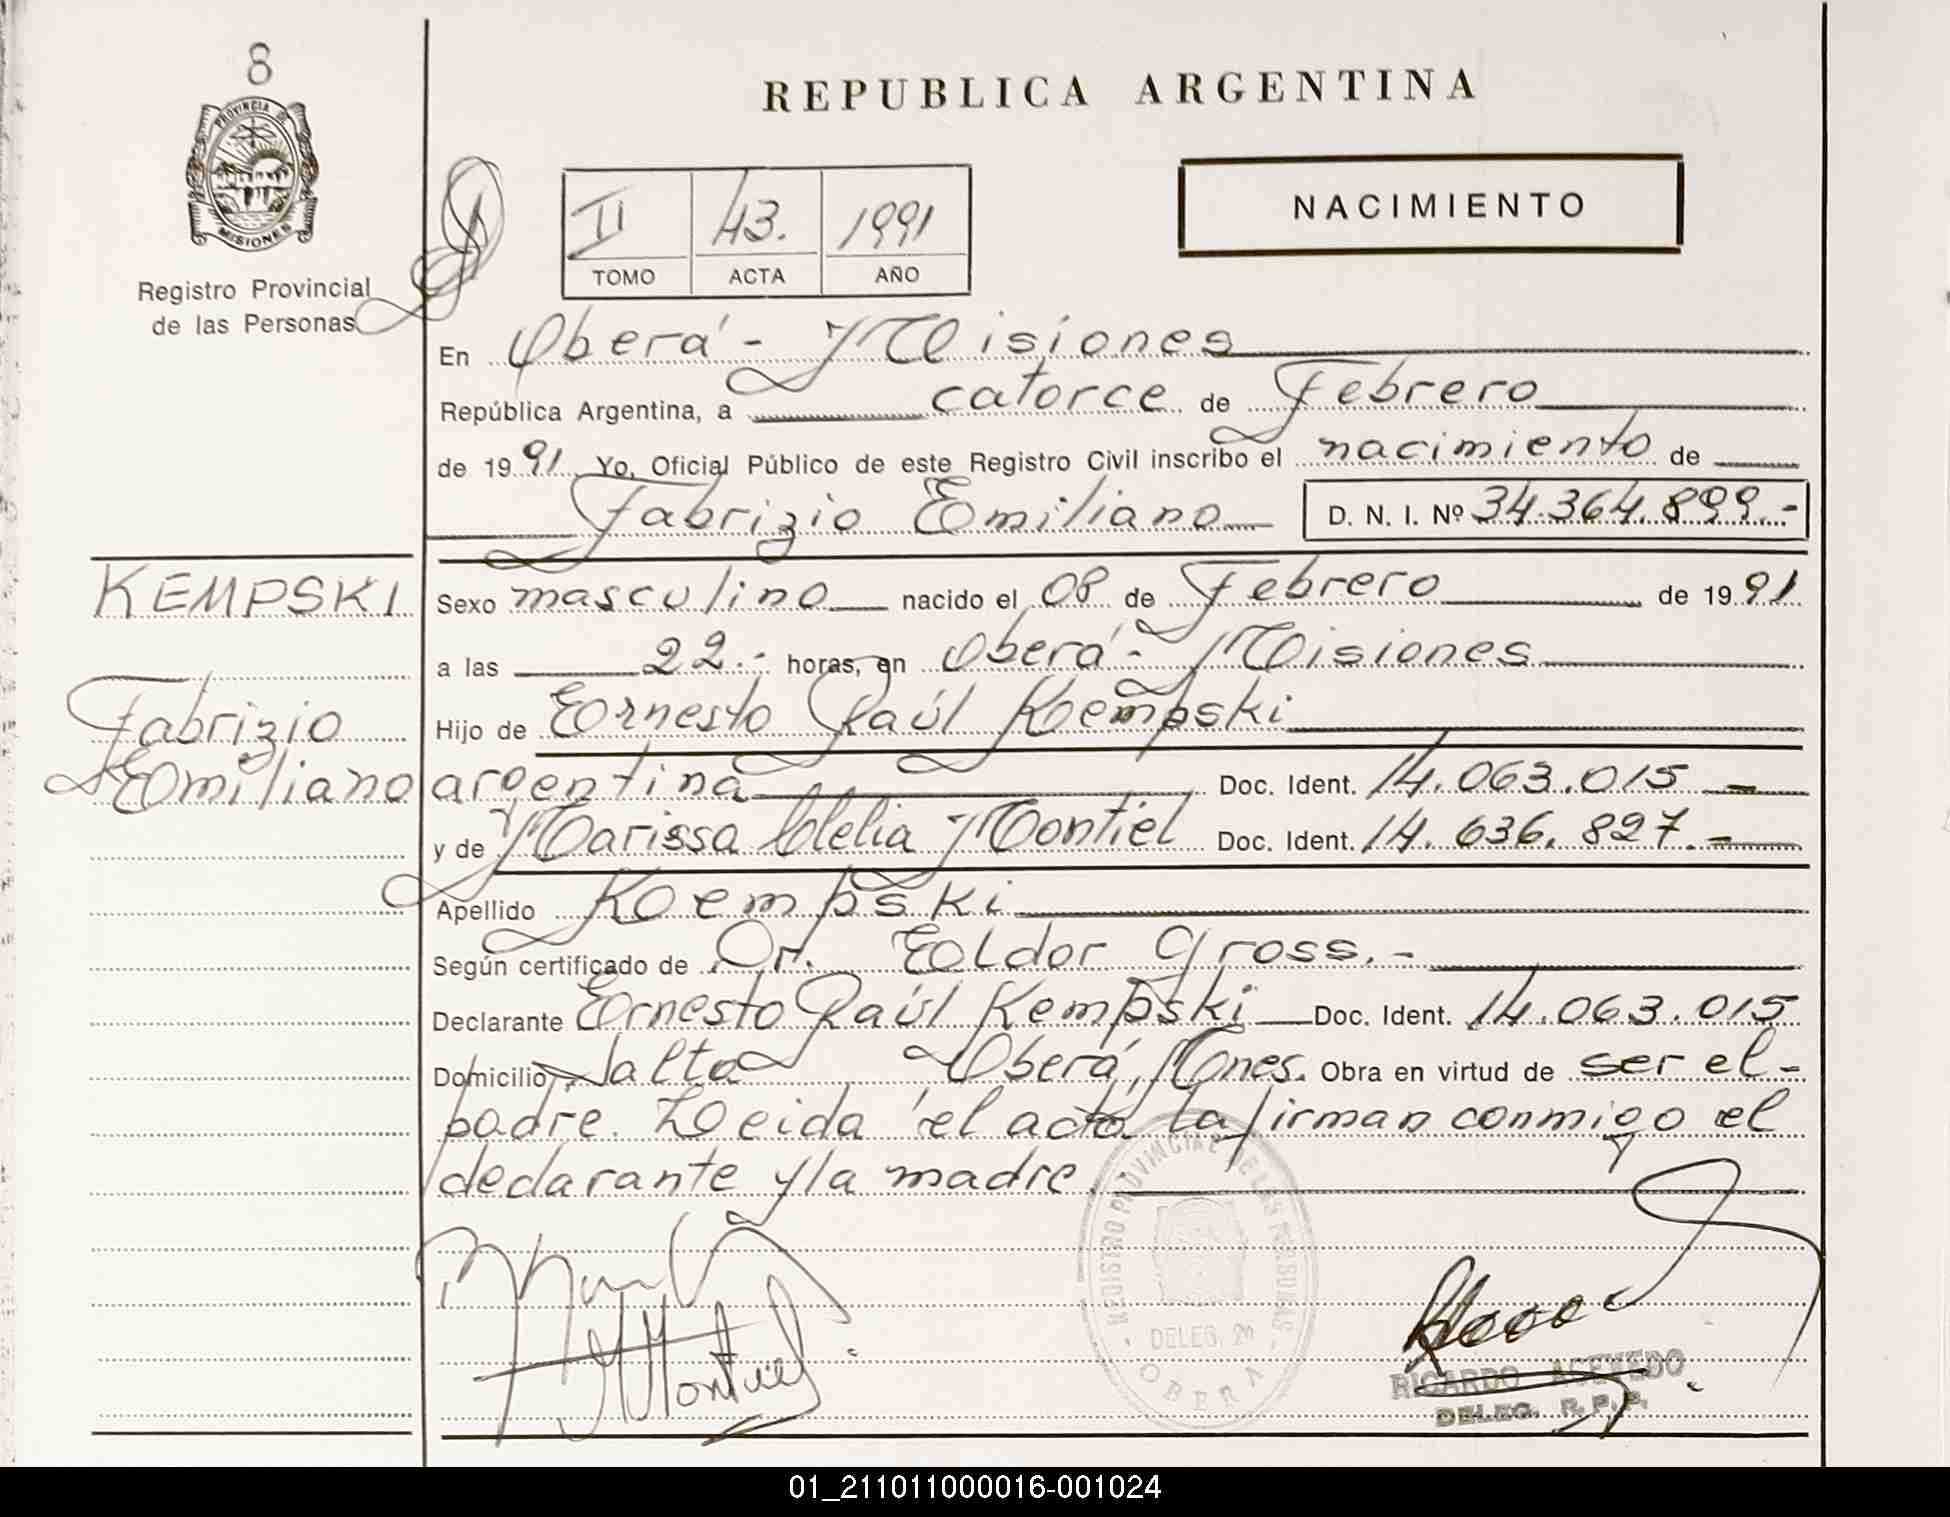 8
PROVINCIA DE
MISIONES
Registro Provincial
de las Personas
KEMPSKI
Fabrizio
Emiliano
REPUBLICA ARGENTINA
II 43. 1991
TOMO ACTA AÑO
NACIMIENTO
En Oberá - Misiones
República Argentina, a catorce de Febrero
de 1991 Yo, Oficial Público de este Registro Civil inscribo el nacimiento de
Fabrizio Emiliano D. N. I. Nº 34.364.899.-
Sexo masculino nacido el 08 de Febrero de 1991
a las 22.- horas, en Oberá - Misiones
Hijo de Ernesto Raúl Kempski
argentina Doc. Ident. 14.063.015 -
y de Marissa Clelia Montiel Doc. Ident. 14.636.827.-
Apellido Kempski
Según certificado de Dr. Eldor Gross.-
Declarante Ernesto Raúl Kempski Doc. Ident. 14.063.015
Domicilio Salta Oberá, Mnes. Obra en virtud de ser el-
padre. Leida el acta la firman conmigo el
declarante y la madre.
REGISTRO PROVINCIAL DE LAS PERSONAS
DELEG.
OBERA
Montiel
RICARDO ACEVEDO
DELEG. R.P.P.
01_211011000016-001024